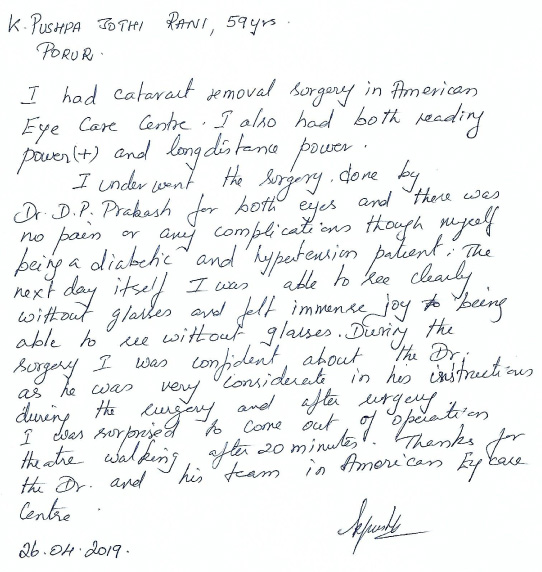 K. PUSHPA JOTHI RANI, 59yrs.
PORUR.
I had cataract removal surgery in American
Eye Care Centre. I also had both reading
power(+) and longdistance power.
I underwent the surgery done by
Dr. D.P. Prakash for both eyes and there was
no pain or any complications though myself
being a diabetic and hypertension patient. The
next day itself I was able to see clearly
without glasses and felt immense joy to being
able to see without glasses. During the
surgery I was confident about the Dr.
as he was very considerate in his instructions
during the surgery and after surgery.
I was surprised to come out of operation
theatre walking after 20 minutes. Thanks for
the Dr. and his team in American Eycare
Centre.
26.04.2019.